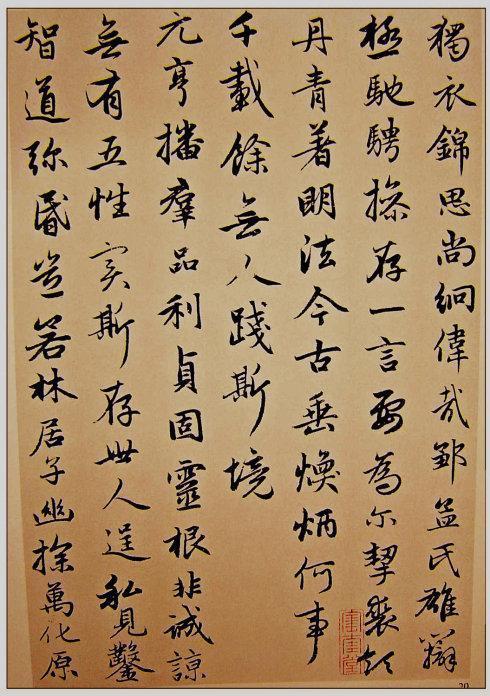 獨衣錦思尚絅偉哉鄒孟氏雄辯
極馳騁操存一言要為尓挈裘領
丹青著明法今古垂煥炳何事
千載餘無人踐斯境
元亨播羣品利貞固靈根非誠諒
無有五性实斯存世人逞私見鑿
智道弥昬豈若林居子幽探萬化原
20